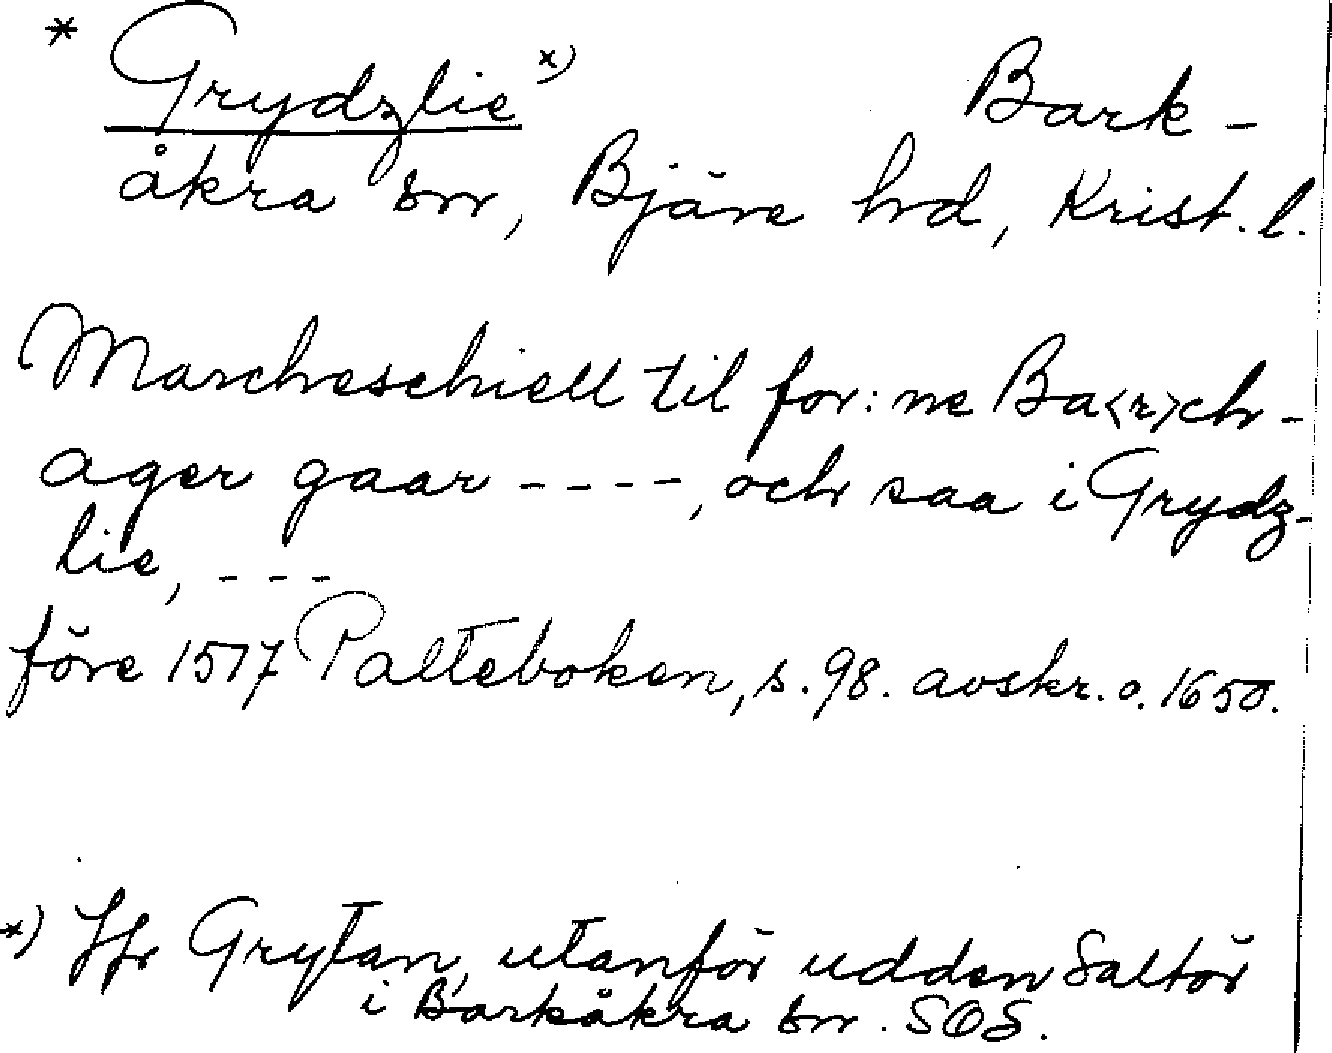 * Grydzlie x) Bark-
åkra sn, Bjäre hd, Krist. l.
Marcheschiell til for:ne Ba<r>ch-
ager gaar ----, och saa i Grydz-
lie, ---
före 1517 Palteboken, s. 98. avskr. o. 1650.
*) Jfr Grytan, utanför udden Saltör
i Barkåkra sn. SOS.